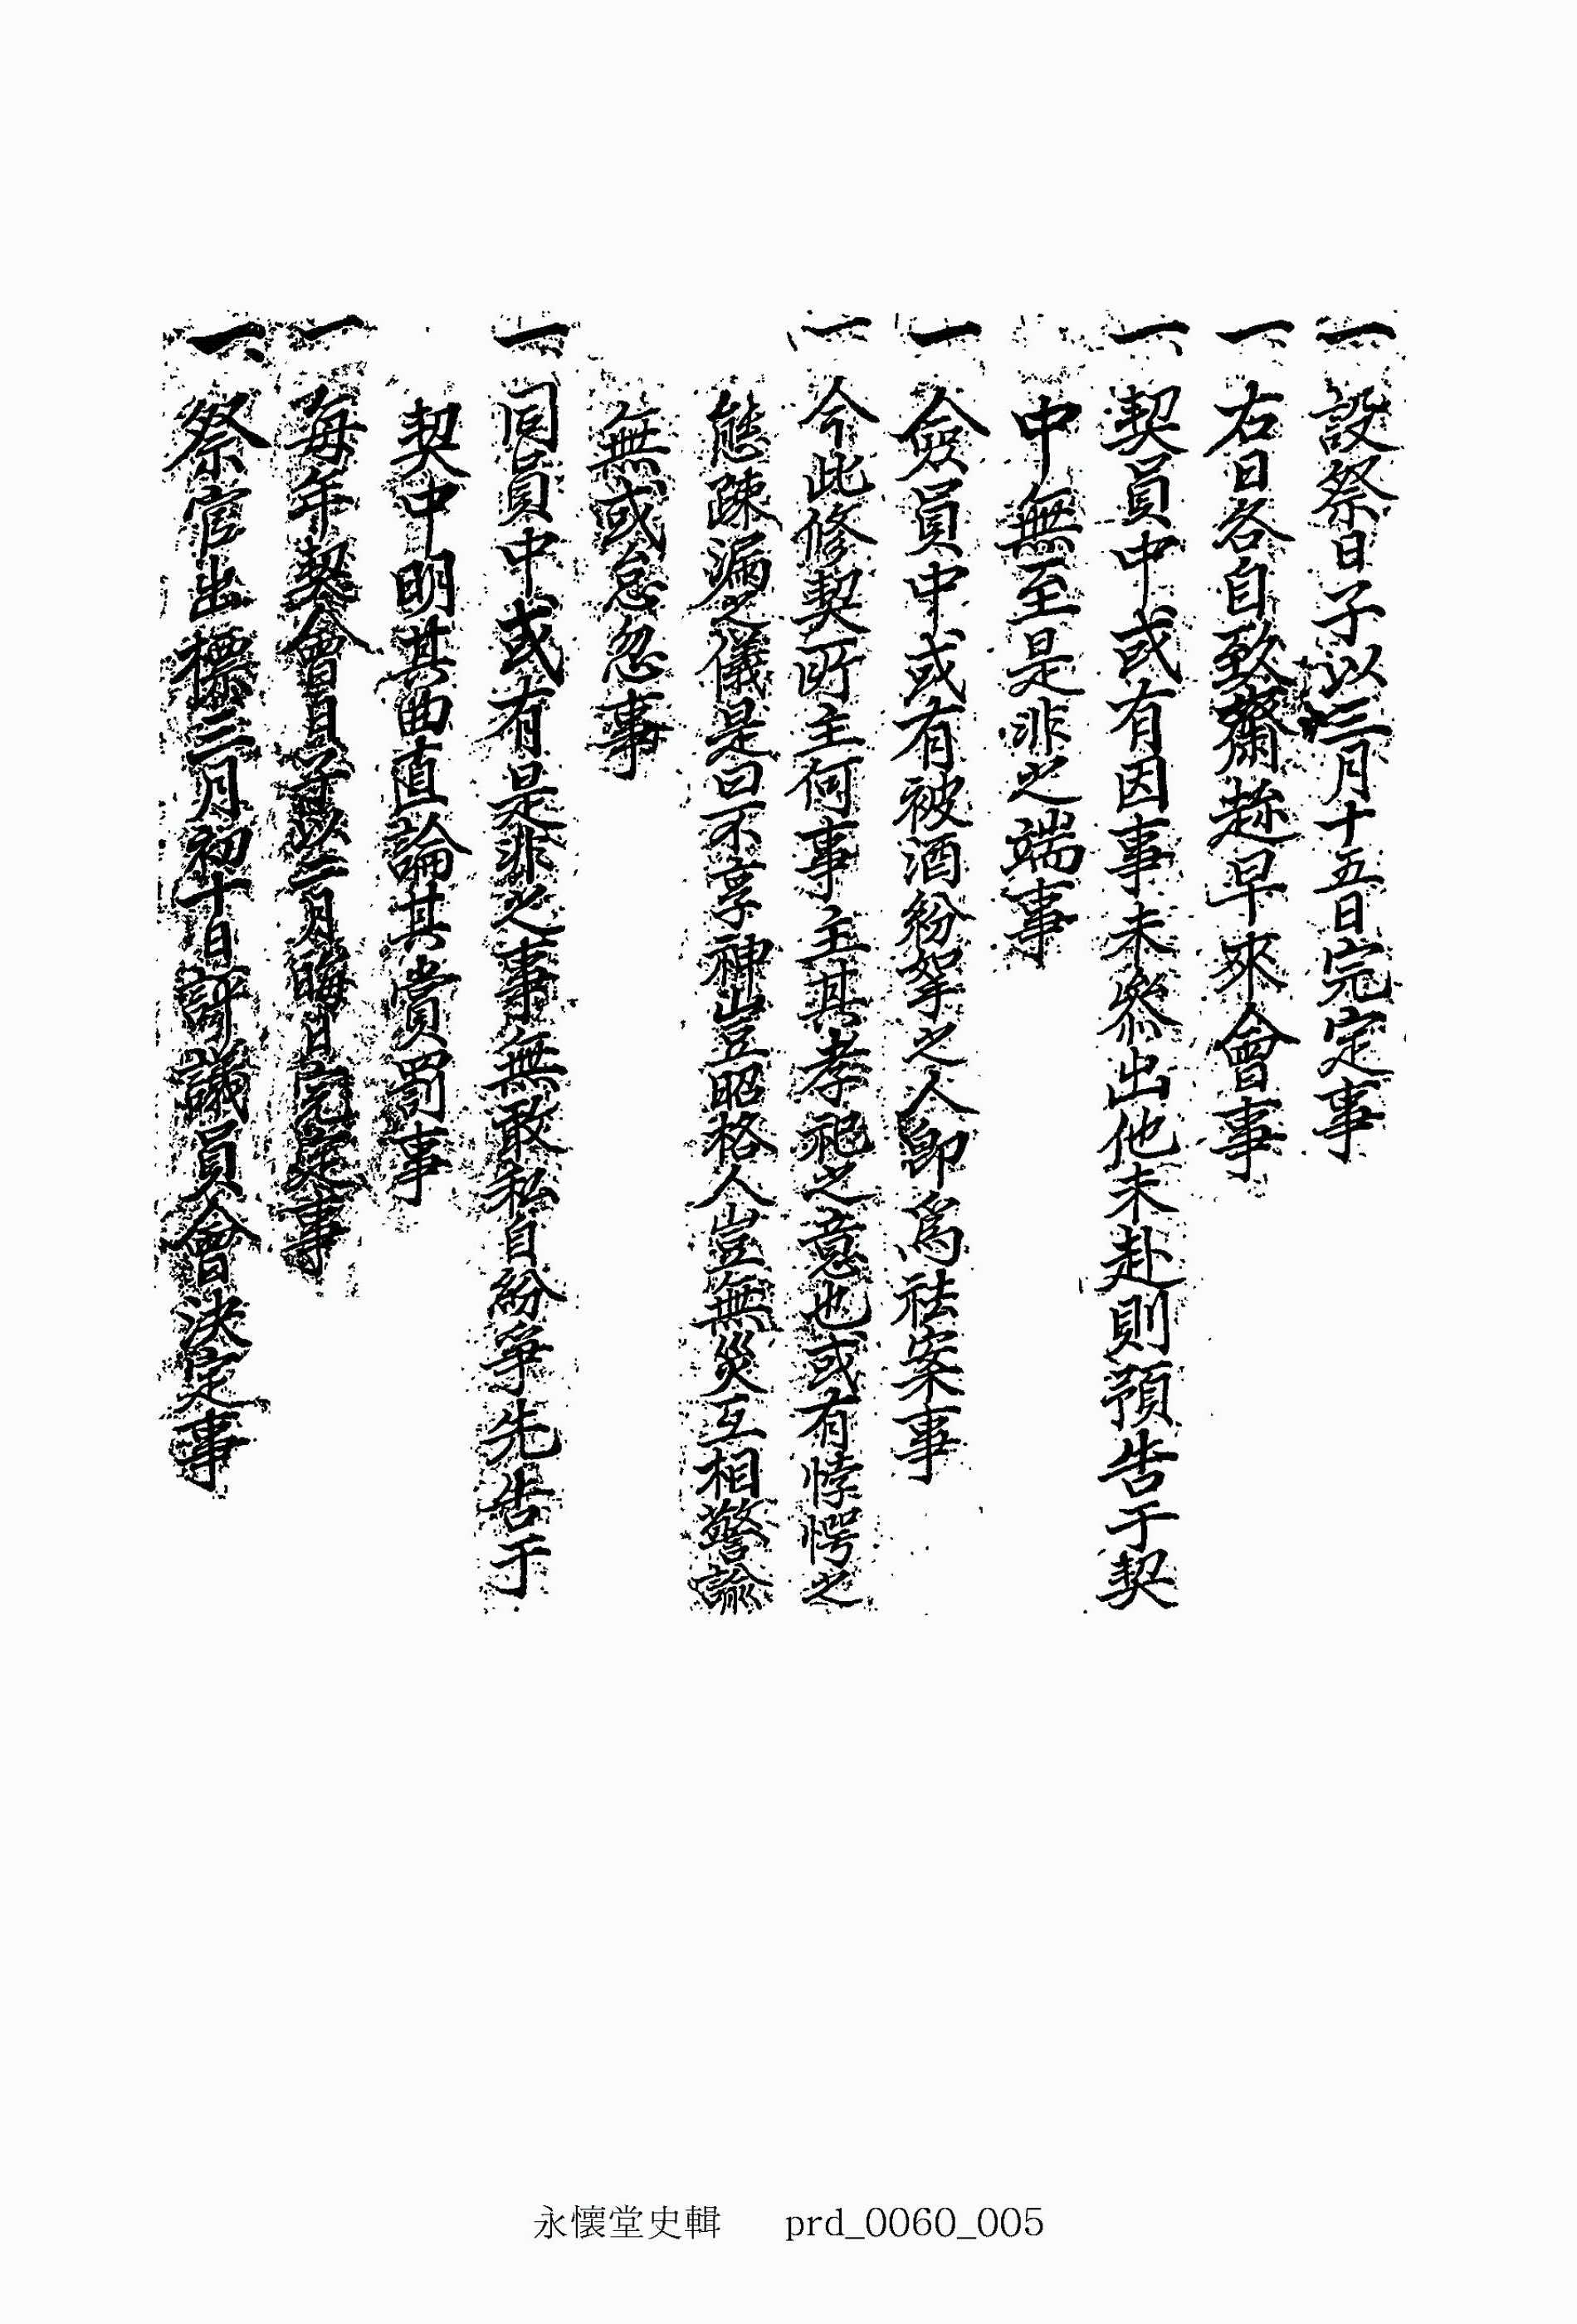 一 設祭日子以三月十五日完定事
一 右日各自致齋趂早來會事
一 契員中或有因事未叅出他未赴則預告于契
中無至是非之端事
一 僉員中或有被酒紛挐之人卽爲祛案事
一 今此修契所主何事主其孝祀之意也或有悖愕之
態疎漏之儀是曰不享神豈昭格人豈無災互相警諭
無或怠忽事
一 同員中或有是非之事無敢私自紛爭先告于
契中明其曲直論其賞罰事
一 每年契會日字以二月晦日完定事
一 祭官出標三月初十日評議員會決定事
永懷堂史輯 prd_0060_005